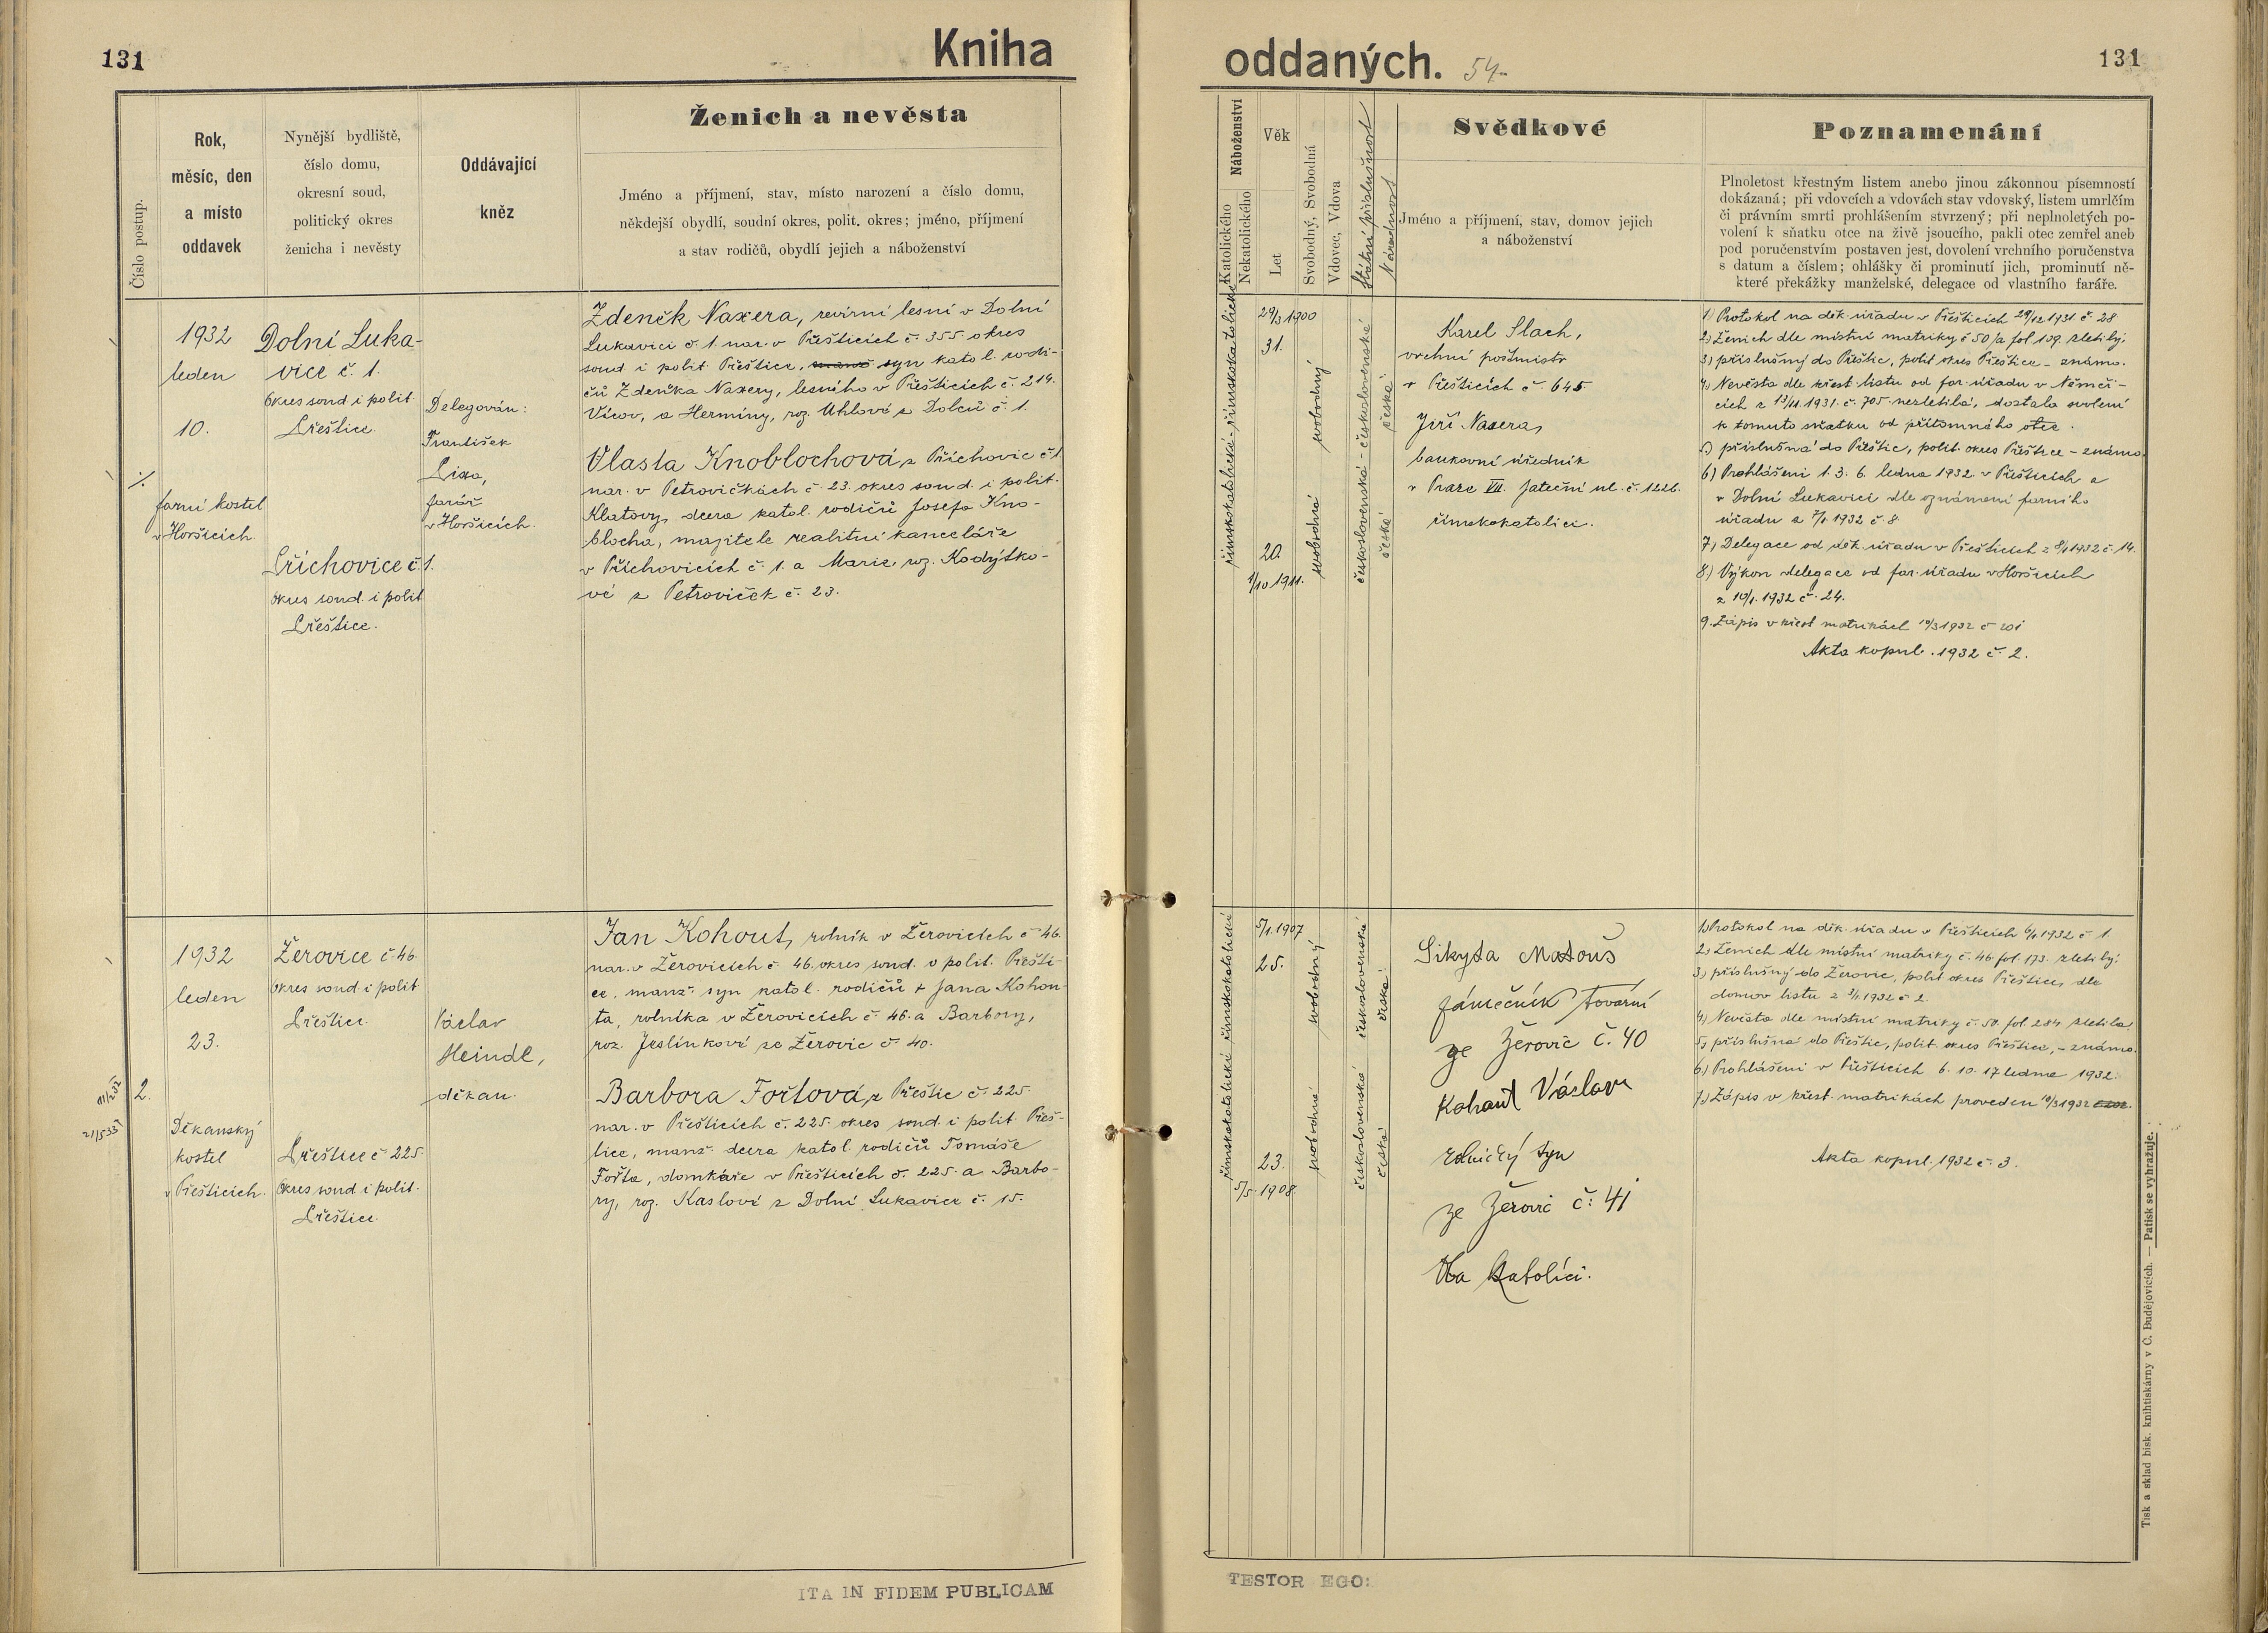 131
Kniha
Číslo postup.
Rok,
měsíc, den
a místo
oddavek
Nynější bydliště,
číslo domu,
okresní soud,
politický okres
ženicha i nevěsty
Oddávající
kněz
Ženich a nevěsta
Jméno a příjmení, stav, místo narození a číslo domu,
někdejší obydlí, soudní okres, polit. okres; jméno, příjmení
a stav rodičů, obydlí jejich a náboženství
1932
leden
10.
farní kostel
v Horšicích
Dolní Luka-
vice č. 1.
Okres soud i polit
Přeštice.
Příchovice č. 1.
okres soud. i polit
Přeštice.
Delegován:
František
farář
v Horšicích.
Zdeněk Naxera, revírní lesní v Dolní
Lukavici č. 1. nar. v Přešticích č. 355. okres
soud i polit. Přeštice, syn katol. rodi-
čů Zdeňka Naxery, lesního v Přešticích č. 214.
Vícov, a Hermíny, roz. Uhlové z Dolců č. 1.
Vlasta Knoblochová z Příchovic č 1
nar. v Petrovičkách č. 23. okres soud. i polit.
Klatovy, dcera katol. rodičů Josefa Kno-
blocha, majitele realitní kanceláře
v Příchovicích č. 1. a Marie, roz. Kodýtko-
vé z Petroviček č. 23.
2.
1932
leden
23.
Děkanský
kostel
v Přešticích.
Žerovice č 46.
Okres soud. i polit
Přeštice.
Přeštice č 225.
Okres soud i polit.
Přeštice.
Václav
Heindl,
děkan.
Jan Kohout, rolník v Žerovicích č 46.
nar. v Žerovicích č. 46. okres soud. i polit. Přešti-
ce, manž. syn katol. rodičů + Jana Kohou-
ta, rolníka v Žerovicích č. 46. a Barbory,
roz. Jeslínkové ze Žerovic č. 40.
Barbora Fořtová z Přeštic č. 225.
nar. v Přešticích č. 225. okres soud. i polit. Přeš-
tice, manž. dcera katol. rodičů Tomáše
Fořta, domkáře v Přešticích č. 225. a Barbo-
ry, roz. Kaslové z Dolní Lukavice č. 15.
ITA IN FIDEM PUBLICAM
oddaných. 54.
131
Náboženství
Katolického
Nekatolického
Věk
Let
Svobodný, Svobodná
Vdovec, Vdova
Státní příslušnost
Národnost
Svědkové
Jméno a příjmení, stav, domov jejich
a náboženství
Poznamenání
Plnoletost křestným listem anebo jinou zákonnou písemností
dokázaná; při vdovcích a vdovách stav vdovský, listem umrlčím
či právním smrti prohlášením stvrzený; při neplnoletých po-
volení k sňatku otce na živě jsoucího, pakli otec zemřel aneb
pod poručenstvím postaven jest, dovolení vrchního poručenstva
s datum a číslem; ohlášky či prominutí jich, prominutí ně-
které překážky manželské, delegace od vlastního faráře.
římskokatolické - římskokatolické
29/3 1900
31.
20.
1/10 1911.
svobodný
svobodná
československá - československé
česká
česká
Karel Slach,
vrchní poštmistr
v Přešticích č. 645.
Jiří Naxera,
bankovní úředník
v Praze VII. Jateční ul. č. 1226.
římskokatolíci.
1) Protokol na děk. úřadu v Přešticích 29/12 1931. č 28
2) Ženich dle místní matriky č 50/a fol 109. zletilý.
3) příslušný do Přeštic, polit okres Přeštice - známo.
4) Nevěsta dle křest. listu od far. úřadu v Němči-
cích z 13/11. 1931. č. 705. nezletilá, dostala svolení
k tomuto sňatku od přítomného otce.
5) příslušná do Přeštic, polit. okres Přeštice - známo
6) Prohlášeni 1. 3. 6. ledna 1932 v Přešticích a
v Dolní Lukavici dle oznámení farního
úřadu z 7/1 1932 č 8
7) Delegace od děk. úřadu v Přešticích z 8/1 1932 č. 14.
8) Výkon delegace od far. úřadu v Horšicích
z 10/1. 1932 č. 24.
9. Zápis v křest matrikách 10/3 1932 č 201
Akta kopul. 1932 č. 2.
římskokatolické římskokatolické
5/1. 1907
25.
23.
5/5. 1908.
svobodný
svobodná
československá československá
česká
česká
Sikyta Matouš
zámečník tovární
ze Žerovic č. 40
Kohout Václav
rolnický syn
ze Žerovic č: 41
Oba katolíci.
1) Protokol na děk. úřadu v Přešticích 6/1. 1932 č 1.
2) Ženich dle místní matriky č. 46. fol. 173. zletilý.
3) příslušný do Žerovic, polit okres Přeštice, dle
domov. listu z 3/1 1932 č 2.
4) Nevěsta dle místní matriky č. 50. fol. 284 zletilá.
5) příslušná do Přeštic, polit. okres Přeštice, - známo.
6) Prohlášeni v Přešticích 6. 10. 17. ledna 1932.
7) Zápis v křest. matrikách proveden 10/3 1932
Akta kopul. 1932 č. 3.
TESTOR EGO:
Tisk a sklad bisk. knihtiskárny v Č. Budějovicích. — Patisk se vyhražuje.